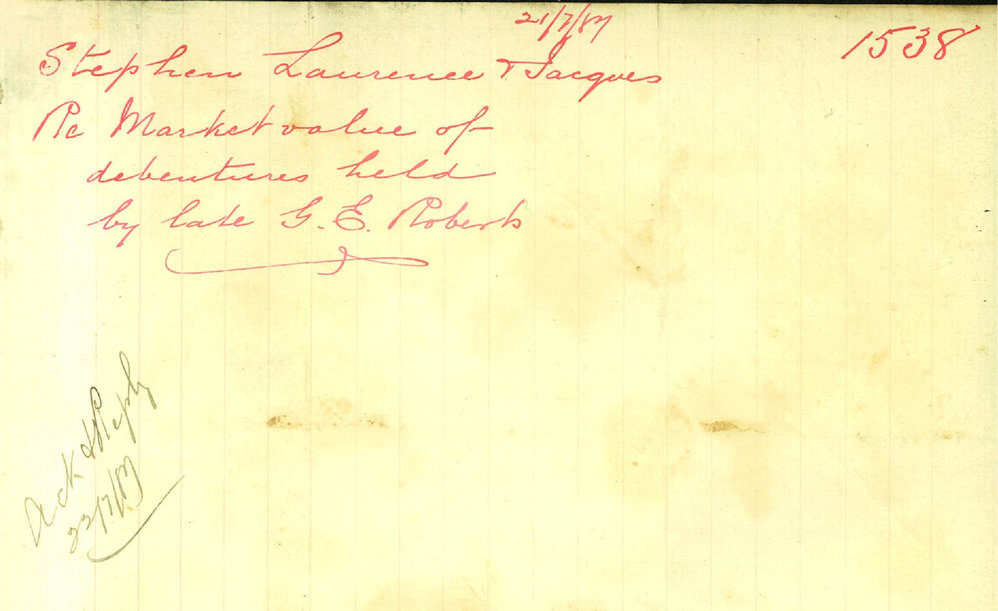 21/7/87
1538
Stephen Laurence & Jacques
Re Market value of
debentures held
by late G. E. Roberts
Ack & Reply
22/7/87